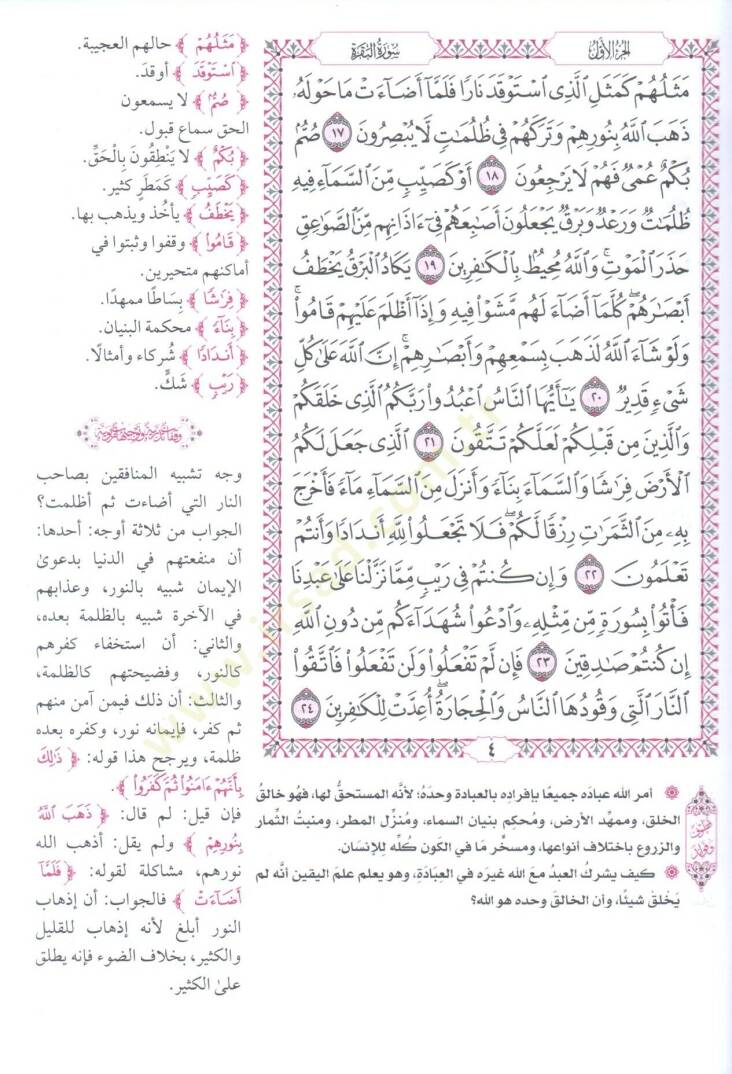 الجزء الأول
سورة البقرة
مَثَلُهُمْ كَمَثَلِ ٱلَّذِى ٱسْتَوْقَدَ نَارًا فَلَمَّآ أَضَآءَتْ مَا حَوْلَهُۥ
ذَهَبَ ٱللَّهُ بِنُورِهِمْ وَتَرَكَهُمْ فِى ظُلُمَٰتٍ لَّا يُبْصِرُونَ ١٧ صُمٌّۢ
بُكْمٌ عُمْىٌ فَهُمْ لَا يَرْجِعُونَ ١٨ أَوْ كَصَيِّبٍ مِّنَ ٱلسَّمَآءِ فِيهِ
ظُلُمَٰتٌ وَرَعْدٌ وَبَرْقٌ يَجْعَلُونَ أَصَٰبِعَهُمْ فِىٓ ءَاذَانِهِم مِّنَ ٱلصَّوَٰعِقِ
حَذَرَ ٱلْمَوْتِ ۚ وَٱللَّهُ مُحِيطٌۢ بِٱلْكَٰفِرِينَ ١٩ يَكَادُ ٱلْبَرْقُ يَخْطَفُ
أَبْصَٰرَهُمْ ۖ كُلَّمَآ أَضَآءَ لَهُم مَّشَوْا۟ فِيهِ وَإِذَآ أَظْلَمَ عَلَيْهِمْ قَامُوا۟ ۚ
وَلَوْ شَآءَ ٱللَّهُ لَذَهَبَ بِسَمْعِهِمْ وَأَبْصَٰرِهِمْ ۚ إِنَّ ٱللَّهَ عَلَىٰ كُلِّ
شَىْءٍ قَدِيرٌ ٢٠ يَٰٓأَيُّهَا ٱلنَّاسُ ٱعْبُدُوا۟ رَبَّكُمُ ٱلَّذِى خَلَقَكُمْ
وَٱلَّذِينَ مِن قَبْلِكُمْ لَعَلَّكُمْ تَتَّقُونَ ٢١ ٱلَّذِى جَعَلَ لَكُمُ
ٱلْأَرْضَ فِرَٰشًا وَٱلسَّمَآءَ بِنَآءً وَأَنزَلَ مِنَ ٱلسَّمَآءِ مَآءً فَأَخْرَجَ
بِهِۦ مِنَ ٱلثَّمَرَٰتِ رِزْقًا لَّكُمْ ۖ فَلَا تَجْعَلُوا۟ لِلَّهِ أَندَادًا وَأَنتُمْ
تَعْلَمُونَ ٢٢ وَإِن كُنتُمْ فِى رَيْبٍ مِّمَّا نَزَّلْنَا عَلَىٰ عَبْدِنَا
فَأْتُوا۟ بِسُورَةٍ مِّن مِّثْلِهِۦ وَٱدْعُوا۟ شُهَدَآءَكُم مِّن دُونِ ٱللَّهِ
إِن كُنتُمْ صَٰدِقِينَ ٢٣ فَإِن لَّمْ تَفْعَلُوا۟ وَلَن تَفْعَلُوا۟ فَٱتَّقُوا۟
ٱلنَّارَ ٱلَّتِى وَقُودُهَا ٱلنَّاسُ وَٱلْحِجَارَةُ ۖ أُعِدَّتْ لِلْكَٰفِرِينَ ٢٤
٤
﴿مَثَلُهُمْ﴾ حالهم العجيبة.
﴿ٱسْتَوْقَدَ﴾ أوقد.
﴿صُمٌّۢ﴾ لا يسمعون
الحق سماع قبول.
﴿بُكْمٌ﴾ لا يَنْطِقُونَ بِالْحَقِّ.
﴿كَصَيِّبٍ﴾ كَمَطَرٍ كثير.
﴿يَخْطَفُ﴾ يأخُذ ويذهب بها.
﴿قَامُوا۟﴾ وقفوا وثبتوا في
أماكنهم متحيرين.
﴿فِرَٰشًا﴾ بِسَاطًا ممهدًا.
﴿بِنَآءً﴾ محكمة البنيان.
﴿أَندَادًا﴾ شُركاء وأمثالًا.
﴿رَيْبٍ﴾ شَكٍّ.
وجه تشبيه المنافقين بصاحب
النار التي أضاءت ثم أظلمت؟
الجواب من ثلاثة أوجه: أحدها:
أن منفعتهم في الدنيا بدعوىٰ
الإيمان شبيه بالنور، وعذابهم
في الآخرة شبيه بالظلمة بعده،
والثاني: أن استخفاء كفرهم
كالنور، وفضيحتهم كالظلمة،
والثالث: أن ذلك فيمن آمن منهم
ثم كفر، فإيمانه نور، وكفره بعده
ظلمة، ويرجح هذا قوله: ﴿ذَٰلِكَ
بِأَنَّهُمْ ءَامَنُوا۟ ثُمَّ كَفَرُوا۟﴾.
فإن قيل: لم قال: ﴿ذَهَبَ ٱللَّهُ
بِنُورِهِمْ﴾ ولم يقل: أذهب الله
نورهم، مشاكلة لقوله: ﴿فَلَمَّآ
أَضَآءَتْ﴾ فالجواب: أن إذهاب
النور أبلغ لأنه إذهاب للقليل
والكثير، بخلاف الضوء فإنه يطلق
علىٰ الكثير.
أمر الله عبادَه جميعًا بإفرادِه بالعبادة وحدَهُ؛ لأنَّه المستحقُّ لها، فهُو خالقُ
الخلق، وممهِّد الأرض، ومُحكِم بنيان السماء، ومُنزِّل المطر، ومنبتُ الثِّمار
والزروع باختلاف أنواعها، ومسخِّر مَا في الكَون كُلِّه لِلإنسَان.
كيف يشركُ العبدُ معَ الله غيرَه في العِبَادَةِ، وهو يعلم علمَ اليقين أنَّه لم
يَخلق شيئًا، وأن الخالقَ وحدَه هو الله؟